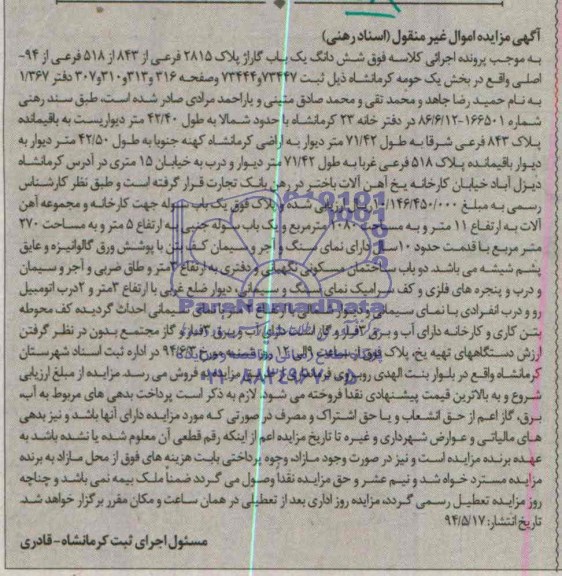 آگهی مزایده اموال غیر منقول (اسناد رهنی)
به موجب پرونده اجرائی کلاسه فوق شش دانگ یک باب گاراژ پلاک ۲۸۱۵ فرعی از ۸۴۳ از ۵۱۸ فرعی از ۹۴-
اصلی واقع در بخش یک حومه کرمانشاه ذیل ثبت ۷۳۴۴۷و۷۳۴۴۴ وصفحه ۳۱۶ و۳۱۳و۳۱۰و۳۰۷ دفتر ۱/۳۶۷
به نام حمید رضا جاهد و محمد تقی و محمد صادق متینی و یاراحمد مرادی صادر شده است، طبق سند رهنی
شماره ۱۶۶۵۰۱-۸۶/۶/۱۲ در دفتر خانه ۲۳ کرمانشاه با حدود شمالا به طول ۴۲/۴۰ متر دیواریست به باقیمانده
پلاک ۸۴۳ فرعی شرقا به طول ۷۱/۴۲ متر دیوار به اراضی کرمانشاه کهنه جنوبا به طول ۴۲/۵۰ متر دیوار به
دیوار باقیمانده پلاک ۵۱۸ فرعی غربا به طول ۷۱/۴۲ متر دیوار و درب به خیابان ۱۵ متری در آدرس کرمانشاه
دیزل آباد خیابان کارخانه یخ آهن آلات باختر در رهن بانک تجارت قرار گرفته است و طبق نظر کارشناس
رسمی به مبلغ ۱۰/۱۴۶/۴۵۰/۰۰۰ ریال ارزیابی شده و پلاک فوق یک باب سوله جهت کارخانه و مجموعه آهن
آلات به ارتفاع ۱۱ متر و به مساحت ۱۰۸۰ مترمربع و یک باب سوله جنبی به ارتفاع ۵ متر و به مساحت ۲۷۰
متر مربع با قدمت حدود ۱۰ سال دارای نمای سنگ و آجر و سیمان کف بتن با پوشش ورق گالوانیزه و عایق
پشم شیشه می باشد. دو باب ساختمان مسکونی نگهبانی و دفتری به ارتفاع ۳متر و طاق ضربی و آجر و سیمان
و درب و پنجره های فلزی و کف سرامیک نمای سنگ و سیمانی، دیوار ضلع غربی با ارتفاع ۳متر و ۲درب اتومبیل
رو و درب انفرادی با نمای سیمانی و دیوار به ارتفاع متر با نمای سیمانی احداث گردیده کف محوطه
بتن کاری و کارخانه دارای آب و برق ۳فاز و گاز دارای آب و برق ۳فاز و گاز مجتمع بدون در نظر گرفتن
ارزش دستگاههای تهیه یخ، پلاک فوق از ساعت ۹ الی ۱۲ روز مورخ ۹۴/۶/۳ در اداره ثبت اسناد شهرستان
کرمانشاه واقع در بلوار بنت الهدی روبروی از طریق مزایده به فروش می رسد. مزایده از مبلغ ارزیابی
شروع و به بالاترین قیمت پیشنهادی نقدا فروخته می شود. لازم به ذکر است پرداخت بدهی های مربوط به آب،
برق، گاز اعم از حق انشعاب و یا حق اشتراک و مصرف در صورتی که مورد مزایده دارای آنها باشد و نیز بدهی
های مالیاتی و عوارض شهرداری و غیره تا تاریخ مزایده اعم از اینکه رقم قطعی آن معلوم شده یا نشده باشد به
عهده برنده مزایده است و نیز در صورت وجود مازاد، وجوه پرداختی بابت هزینه های فوق از محل مازاد به برنده
مزایده مسترد خواه شد و نیم عشر و حق مزایده نقدا وصول می گردد ضمنا ملک بیمه نمی باشد و چناچه
روز مزایده تعطیل رسمی گردد، مزایده روز اداری بعد از تعطیلی در همان ساعت و مکان مقرر برگزار خواهد شد.
تاریخ انتشار: ۹۴/۵/۱۷
مسئول اجرای ثبت کرمانشاه- قادری
ParsNamadData
۰۲۱-۸۸۳۴۹۶۷۰